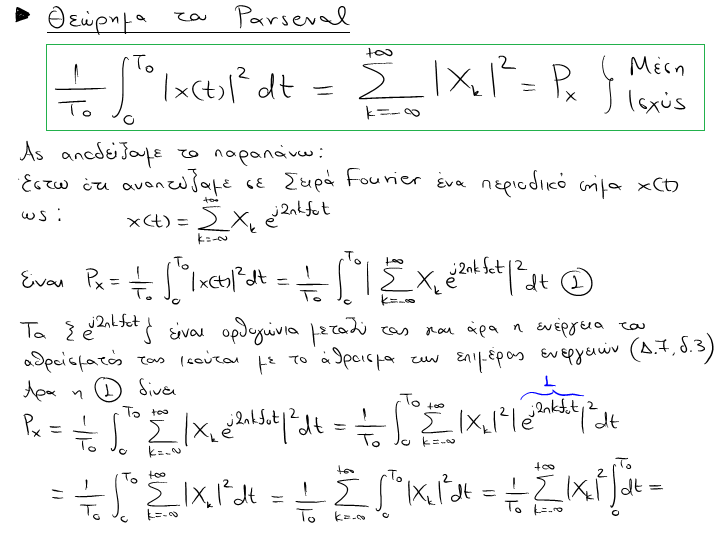 ► Θεώρημα του Parseval
1/T₀ ∫₀^T₀ |x(t)|² dt = Σ_{k=-∞}^{+∞} |X_k|² = P_x } Μέση Ισχύς
Ας αποδείξουμε το παραπάνω:
Έστω ότι αναπτύξαμε σε Σειρά Fourier ένα περιοδικό σήμα x(t)
ως: x(t) = Σ_{k=-∞}^{+∞} X_k e^{j2πkf₀t}
Είναι P_x = 1/T₀ ∫₀^T₀ |x(t)|² dt = 1/T₀ ∫₀^T₀ | Σ_{k=-∞}^{+∞} X_k e^{j2πkf₀t} |² dt ①
Τα {e^{j2πkf₀t}} είναι ορθογώνια μεταξύ τους και άρα η ενέργεια του
αθροίσματός τους ισούται με το άθροισμα των επιμέρους ενεργειών (Δ.7, δ.3)
Άρα η ① δίνει 1
P_x = 1/T₀ ∫₀^T₀ Σ_{k=-∞}^{+∞} |X_k e^{j2πkf₀t}|² dt = 1/T₀ ∫₀^T₀ Σ_{k=-∞}^{+∞} |X_k|² |e^{j2πkf₀t}|² dt
= 1/T₀ ∫₀^T₀ Σ_{k=-∞}^{+∞} |X_k|² dt = 1/T₀ Σ_{k=-∞}^{+∞} ∫₀^T₀ |X_k|² dt = 1/T₀ Σ_{k=-∞}^{+∞} |X_k|² ∫₀^T₀ dt =